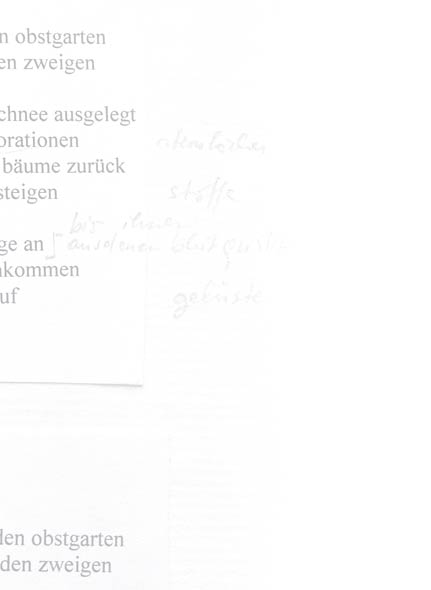 n obstgarten
en zweigen
chnee ausgelegt
orationen
bäume zurück
steigen
stoffe
bis ihnen
ge an ausdenen blut
nkommen
uf
gelüste
den obstgarten
den zweigen